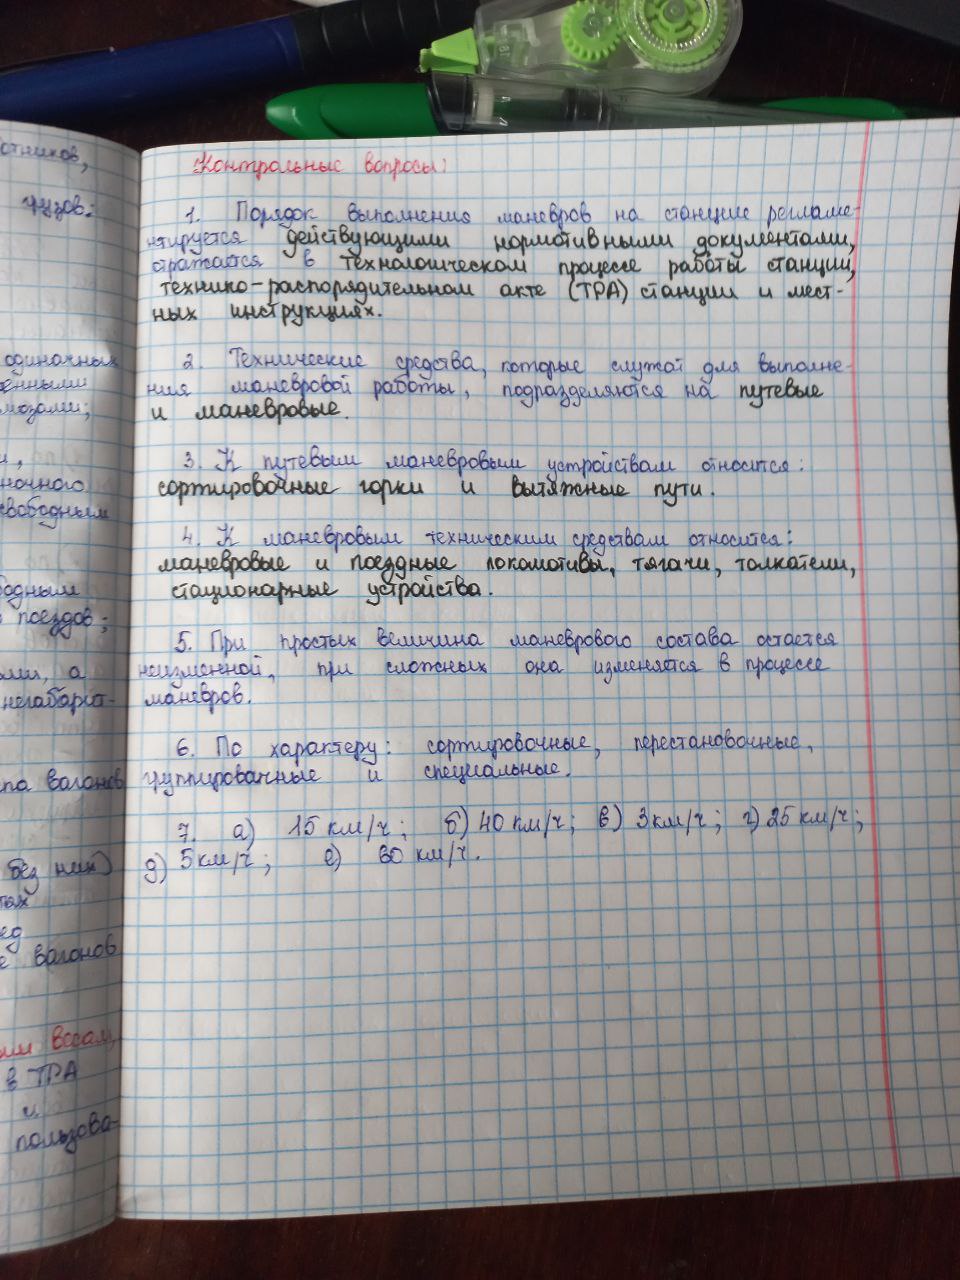 отников,
грузов:
одиночных
енными
мозами;
и,
ночного
свободным
бодным
поездов;
ыми, а
негабарит-
па вагонов
без них)
тых
ед
е вагонов
ым весам,
в ТРА
и
пользова-
Контрольные вопросы:
1. Порядок выполнения маневров на станцие регламе-
нтируется действующими нормотивными документами,
отражается в технологическом процессе работы станции,
технико-распорядительном акте (ТРА) станции и мест-
ных инструкциях.
2. Технические средства, которые служат для выполне-
ния маневровой работы, подразделяются на путевые
и маневровые.
3. К путевым маневровым устройствам относится:
сортировочные горки и вытяжные пути.
4. К маневровым техническим средствам относится:
маневровые и поездные локомотивы, тягачи, толкатели,
стационарные устройства.
5. При простых величина маневрового состава остается
неизменной, при сложных она изменяется в процессе
маневров.
6. По характеру: сортировочные, перестановочные,
группировачные и специальные.
7. а) 15 км/ч; б) 40 км/ч; в) 3км/ч; г) 25 км/ч;
д) 5км/ч; е) 60 км/ч.